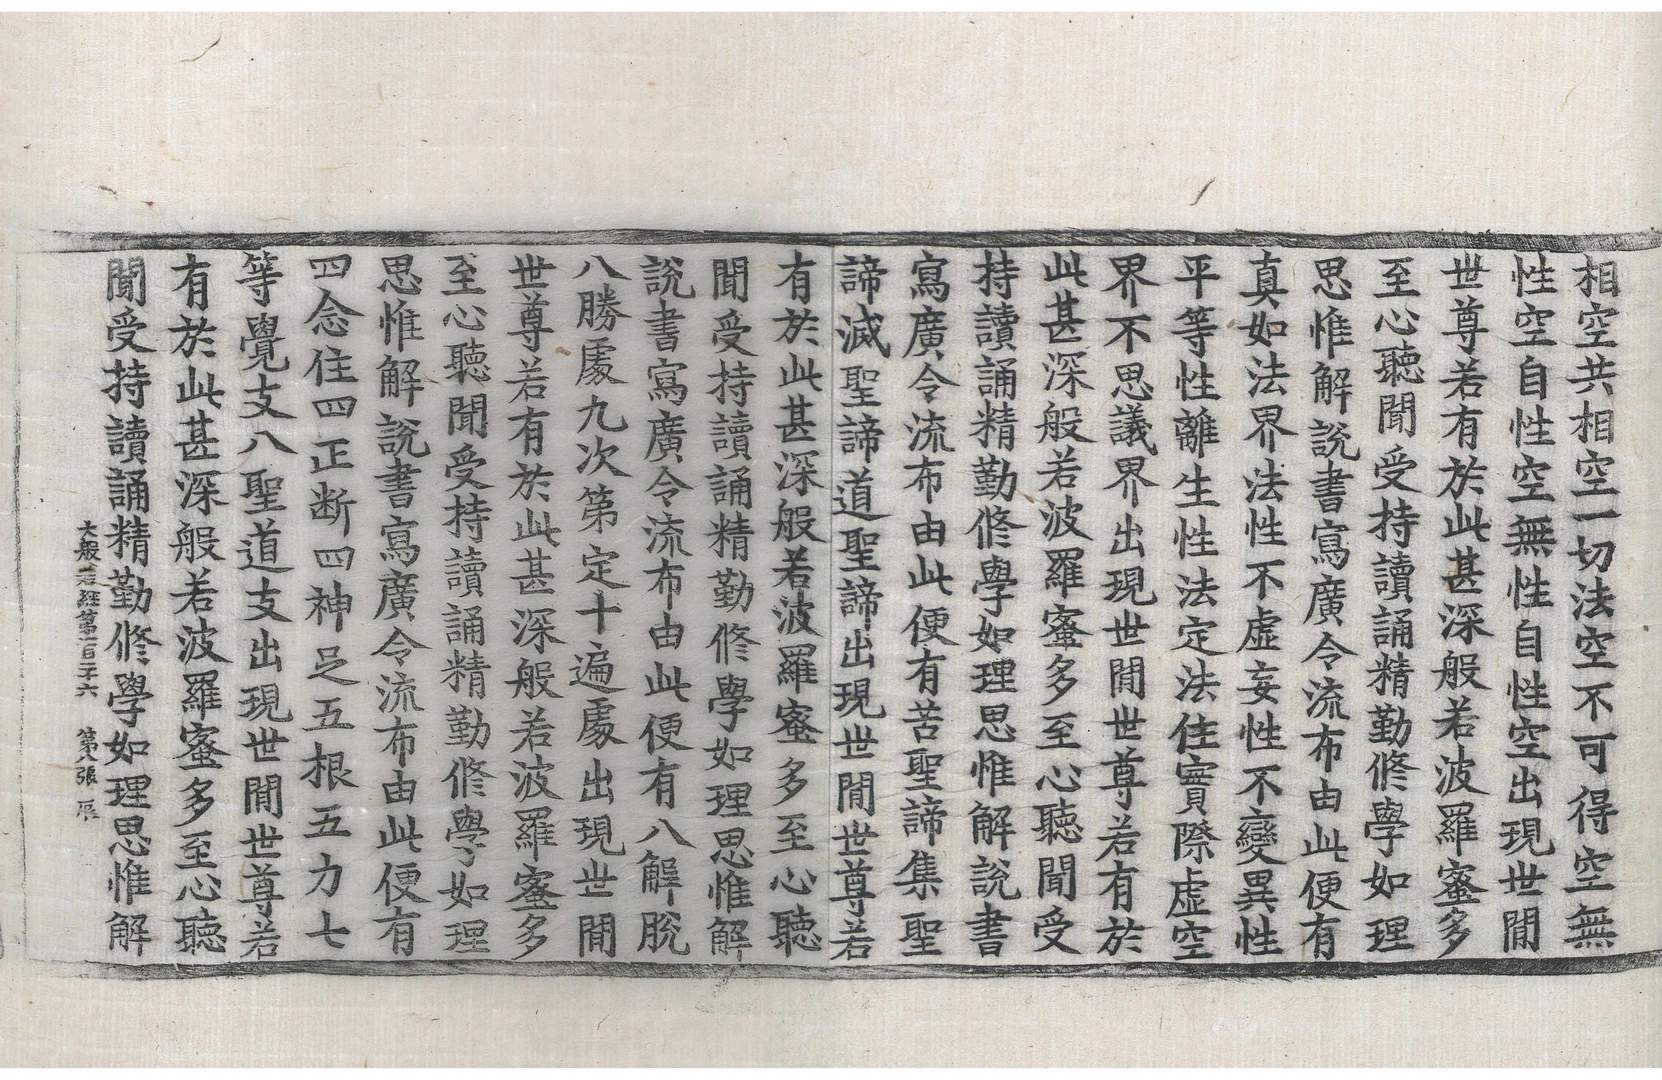 相空共相空一切法空不可得空無
性空自性空無性自性空出現世間
世尊若有於此甚深般若波羅蜜多
至心聽聞受持讀誦精勤修學如理
思惟解說書寫廣令流布由此便有
真如法界法性不虛妄性不變異性
平等性離生性法定法住實際虛空
界不思議界出現世間世尊若有於
此甚深般若波羅蜜多至心聽聞受
持讀誦精勤修學如理思惟解說書
寫廣令流布由此便有苦聖諦集聖
諦滅聖諦道聖諦出現世間世尊若
有於此甚深般若波羅蜜多至心聽
聞受持讀誦精勤修學如理思惟解
說書寫廣令流布由此便有八解脫
八勝處九次第定十遍處出現世間
世尊若有於此甚深般若波羅蜜多
至心聽聞受持讀誦精勤修學如理
思惟解說書寫廣令流布由此便有
四念住四正断四神足五根五力七
等覺支八聖道支出現世間世尊若
有於此甚深般若波羅蜜多至心聽
聞受持讀誦精勤修學如理思惟解
大般若經第一百二十六 第八張